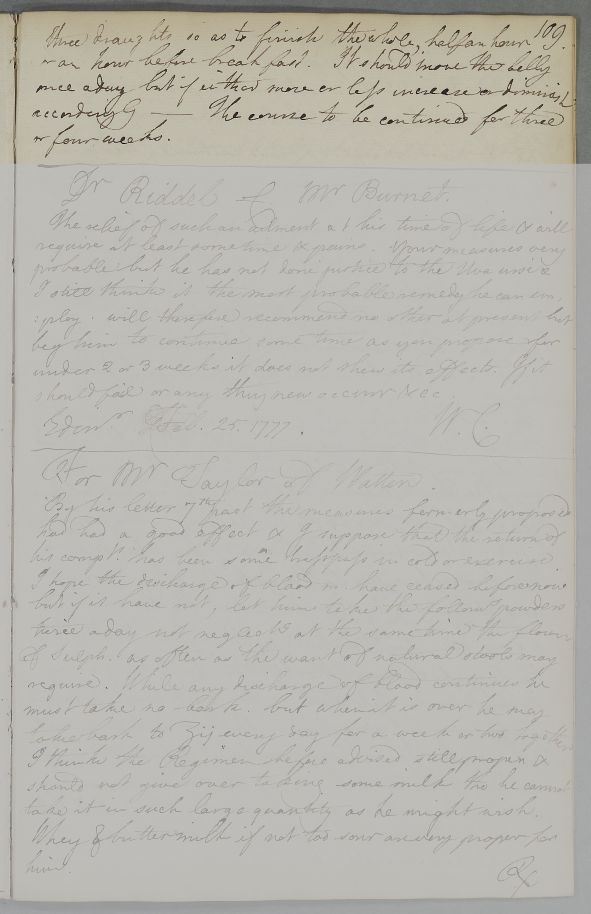 three draughts so as to finish the whole, half an hour 109.
or an hour before breakfast. It should move the belly
once a day but if either more or less increase or diminish
accordingly — The course to be continued for three
or four weeks.
Dr Riddel of Mr Burnet.
The relief of such an ailment at his time of life &c will
require at least some time & pains. Your measures very
probable but he has not done justice to the Uva ursi &
I still think it the most probable remedy he can em,
:ploy. will therefore recommend no other at present but
beg him to continue some time as you propose for
under 2 or 3 weeks it does not shew its effects. If it
should fail or any thing new occurr &c &c
Edinr Feb. 25. 1777. W. C.
For Mr Taylor of Watten.
By his letter 7th past the measures formerly proposed
had had a good effect & I suppose that the return of
his complt has been some trespass in cold or exercise
I hope the discharge of blood m. have ceased before now
but if it have not, let him take the followg powders
twice a day not neglectg at the same time the flowers
of Sulph. as often as the want of natural stools may
require. While any discharge of blood continues he
must take no bark. but when it is over he may
take bark to ʒij every day for a week or two together
I think the Regimen before advised still proper &
should not give over taking some milk tho he cannot
take it in such large quantity as he might wish.
Whey & butter milk if not too sour are very proper for
him. ℞